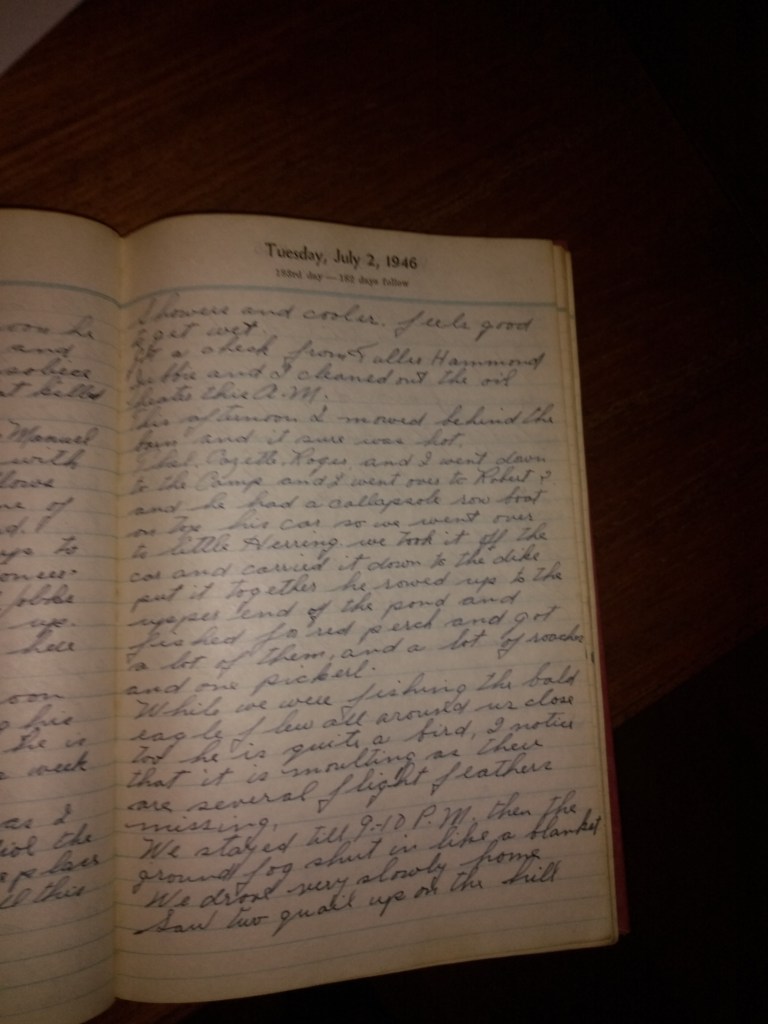 Tuesday, July 2, 1946
183rd day — 182 days follow
Showers and cooler. feels good
to get wet.
Got a check from Hammond
and I cleaned out the oil
heater this A.M.
This afternoon I mowed behind the
barn and it sure was hot.
Roger and I went down
to the Camp and I went over to Robert's
and he had a collapsole row boat
on top his car so we went over
to little Herring we took it off the
car and carried it down to the dike
put it together he rowed up to the
upper end of the pond and
fished for red perch and got
a lot of them, and a lot of roaches
and one pickerl.
While we were fishing the bald
eagle flew all around us close
too he is quite a bird, I notice
that it is moulting as their
are several flight feathers
missing.
We stayed till 9-10 P.M. then the
ground fog shut in like a blanket
We drove very slowly home
Saw two quail up on the hill
oon he
and
at killed
Manuel
with
ne of
d.
up.
here
oon
g his
he is
week
as I
the
this